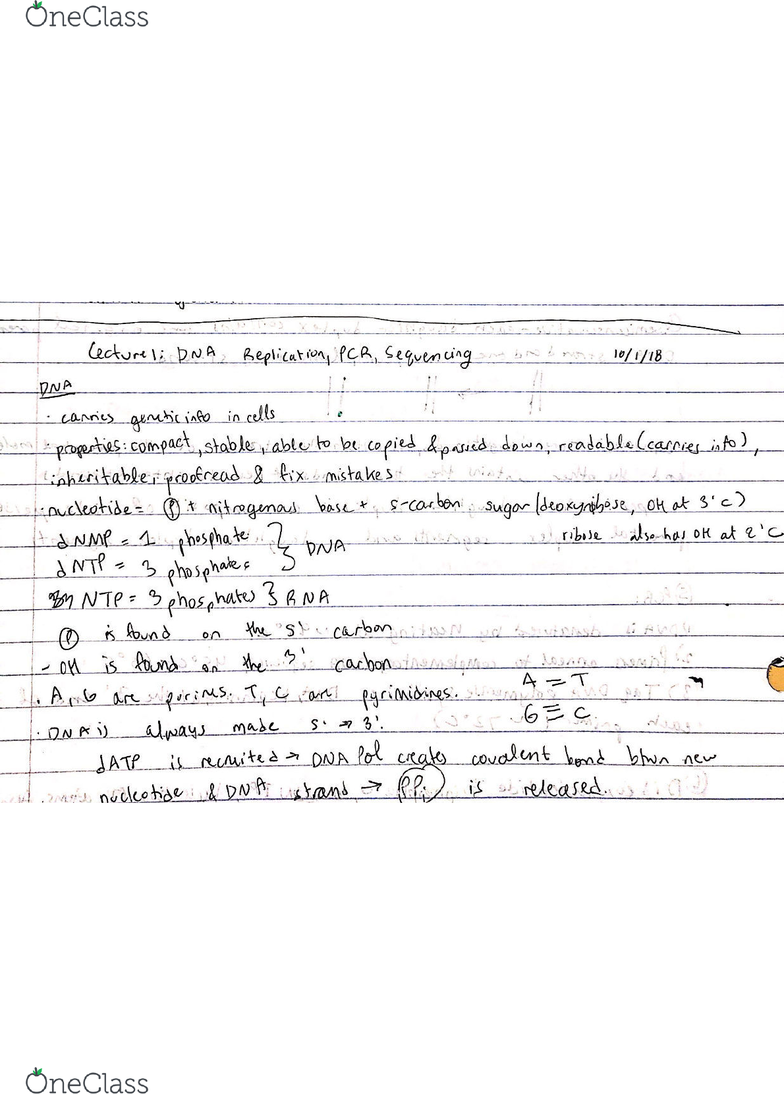 OneClass
Lecture 1: DNA Replication, PCR, Sequencing 10/1/18
DNA
· carries genetic info in cells
· properties: compact, stable, able to be copied & passed down, readable (carries info),
inheritable, proofread & fix mistakes
· nucleotide = Ⓟ + nitrogenous base + 5-carbon sugar (deoxyribose, OH at 3' C)
ribose also has OH at 2' C
dNMP = 1 phosphate } DNA
dNTP = 3 phosphates
NTP = 3 phosphates } RNA
Ⓟ is found on the 5' carbon
- OH is found on the 3' carbon
· A, G are purines. T, C are pyrimidines.
A = T
G ≡ C
· DNA is always made 5' → 3'.
dATP is recruited → DNA Pol creates covalent bond btwn new
nucleotide & DNA strand → PPi is released.
OneClass